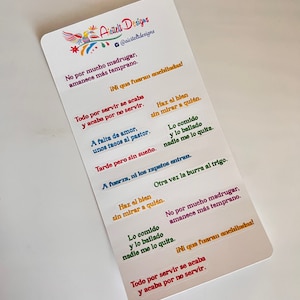 Axitells Designs
No por mucho madrugar,
amanece más temprano.
¡Ni que fueran enchiladas!
Todo por servir se acaba
y acaba por no servir.
Haz el bien
sin mirar a quién.
A falta de amor,
unos tacos al pastor.
Lo comido
y lo bailado
nadie me lo quita.
Tarde pero sin sueño.
Otra vez la burra al trigo.
A fuerza, ni los zapatos entran.
Haz el bien
sin mirar a quién.
No por mucho madrugar,
amanece más temprano.
Lo comido
y lo bailado
nadie me lo quita.
¡Ni que fueran enchiladas!
Todo por servir se acaba
y acaba por no servir.